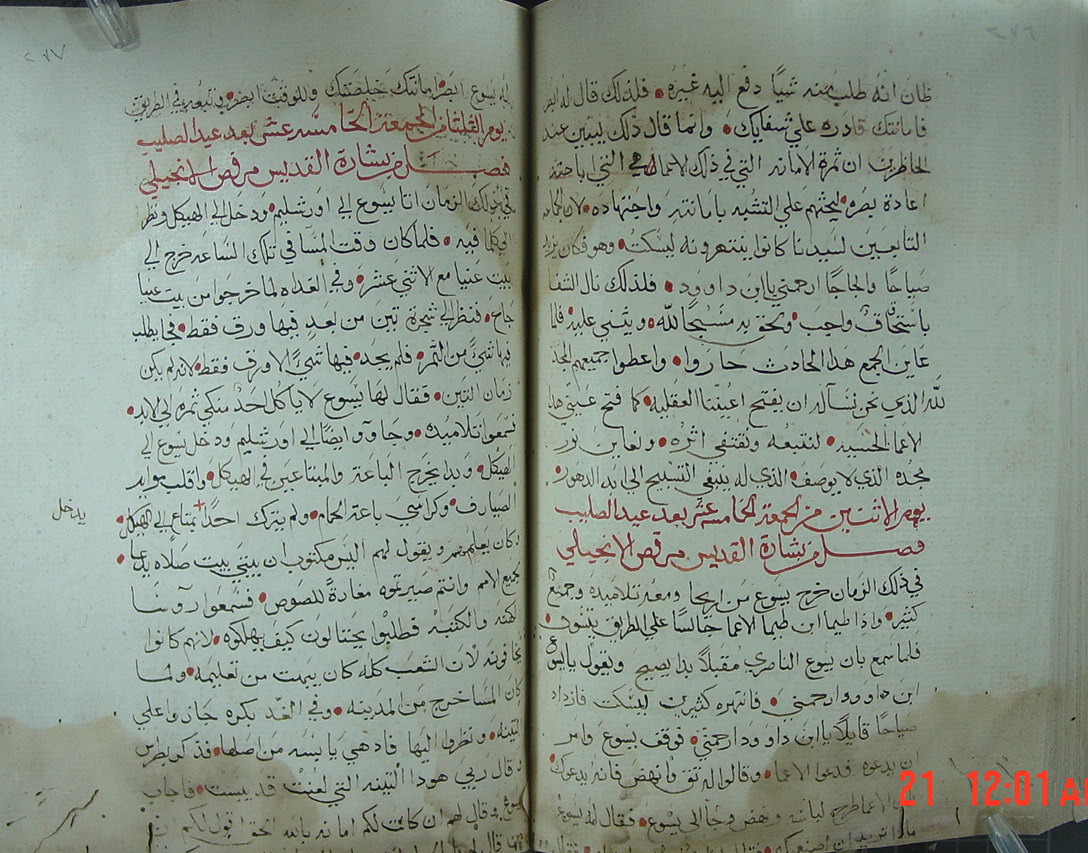 ظان انه طلب منه شيًا دفع اليه غيره • فلذلك قال له
فامانتك قادره علي شفايك • وانما قال ذلك ليبين عند
الحاظرين ان ثمرة الامانه التي في ذلك الاعما هي التي
اعادة بصره ليحثهم علي التشبه بامانته واجتهاده •
التابعين لسيدنا كانوا ينتهرونه ليسكت • وهو فكان يزداد
صياحًا ولجاجًا ارحمني ياابن داوود • فلذلك نال الشفا
باستحقاق واجب • وتحقق به مسيحًا لله • ويثني عليه • فلما
عاين الجمع هذا الحادث حاروا • واعطوا جميعهم المجد
لله الذي نحن نسأله ان يفتح اعيننا العقليه • كما فتح عيني هذا
الاعما الحسيه • لنتبعه ونقتفي اثره • ونعاين نور
مجده الذي لا يوصف • الذي له ينبغي التسبيح الي ابد الدهور •
يوم الاثنين من الجمعة الخامسه عشر بعد عيد الصليب
فصل من بشارة القديس مرقص الانجيلي
في ذلك الزمان خرج يسوع من اريحا ومعه تلاميذه وجميع
كثير • واذا طيما ابن طيما الاعما جالسًا علي الطريق
فلما سمع بان يسوع الناصري مقبلاً بدا يصيح ويقول يايسوع
ابن داوود ارحمني • فانتهره كثيرين ليسكت فازداد
صياحًا قايلاً ياابن داوود ارحمني • فوقف يسوع وامر
ان يدعوه فدعوا الاعما • وقالوا له ثق وانهض فانه يدعوك •
الاعما طرح لباسه ونهض وجا الي يسوع • فقال له يسوع
ماذا تريد ان اصنع بك •
٢٤٧
له يسوع ابصر امانتك خلصتك وللوقت ابصر • وتبعه في الطريق
يوم الثلثا من الجمعة الخامسه عشر بعد عيد الصليب
فصل من بشارة القديس مرقص الانجيلي
في ذلك الزمان اتا يسوع الي اورشليم • ودخل الي الهيكل ونظر
الي كلما فيه • فلما كان وقت المسا في تلك الساعه خرج الي
بيت عنيا مع الاثني عشر • وفي الغداه لما خرجوا من بيت عنيا
جاع • فنظر الي شجرة تين من بعد فيها ورق فقط • فجا يطلب
فيها شيًا من الثمر • فلم يجد فيها شيًا الا ورق فقط • لانه لم يكن
زمان التين • فقال لها يسوع لا ياكل احدٌ منكي ثمره الي الابد •
فسمعوا تلاميذه • وجاووا ايضًا الي اورشليم ودخل يسوع الي
الهيكل • وبدا يخرج الباعة والمبتاعين في الهيكل • واقلب موايد
الصيارف • وكراسي باعة الحمام • ولم يترك احدًا بمتاع الي الهيكل •
يدخل
وكان يعلمهم ويقول لهم اليس مكتوب ان بيتي بيت صلاه يدعا •
لجميع الامم وانتم صيرتموه مغارةً للصوص • فسمعوا روسا
الكهنه والكتبه فطلبوا يحتالون كيف يهلكوه • لانهم كانوا
يخافونه لان الشعب كله كان يبهت من تعليمه • ولما
كان المسا خرج من المدينه • وفي الغد بكره جازوا علي
التينه • ونظروا اليها فاذ هي يابسه من اصلها • فذكر بطرس
وقال ربي هوذا التينه التي لعنت قد يبست • فاجاب
يسوع وقال لهم ان كانت لكم امانه بالله الحق اقول لكم